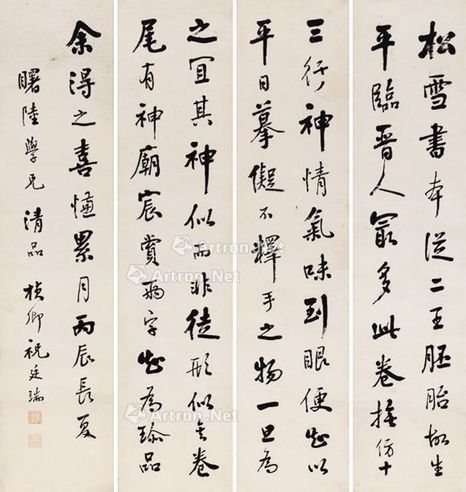 松雪書本從二王胚胎故生
平臨晉人最多此卷仿十
三行神情氣味到眼便知以
平日摹擬不釋手之物一旦為
之宜其神似而非徒形似矣卷
尾有神廟宸賞兩字知為珍品
余得之喜累月丙辰長夏
曙陸學兄清品 楨卿祝廷瑞
Artron.Net
Artron.Net
Artron.Net
Artron.Net